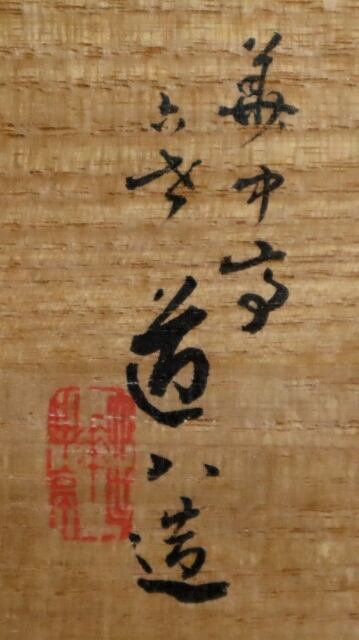 華中亭
六世
道八造